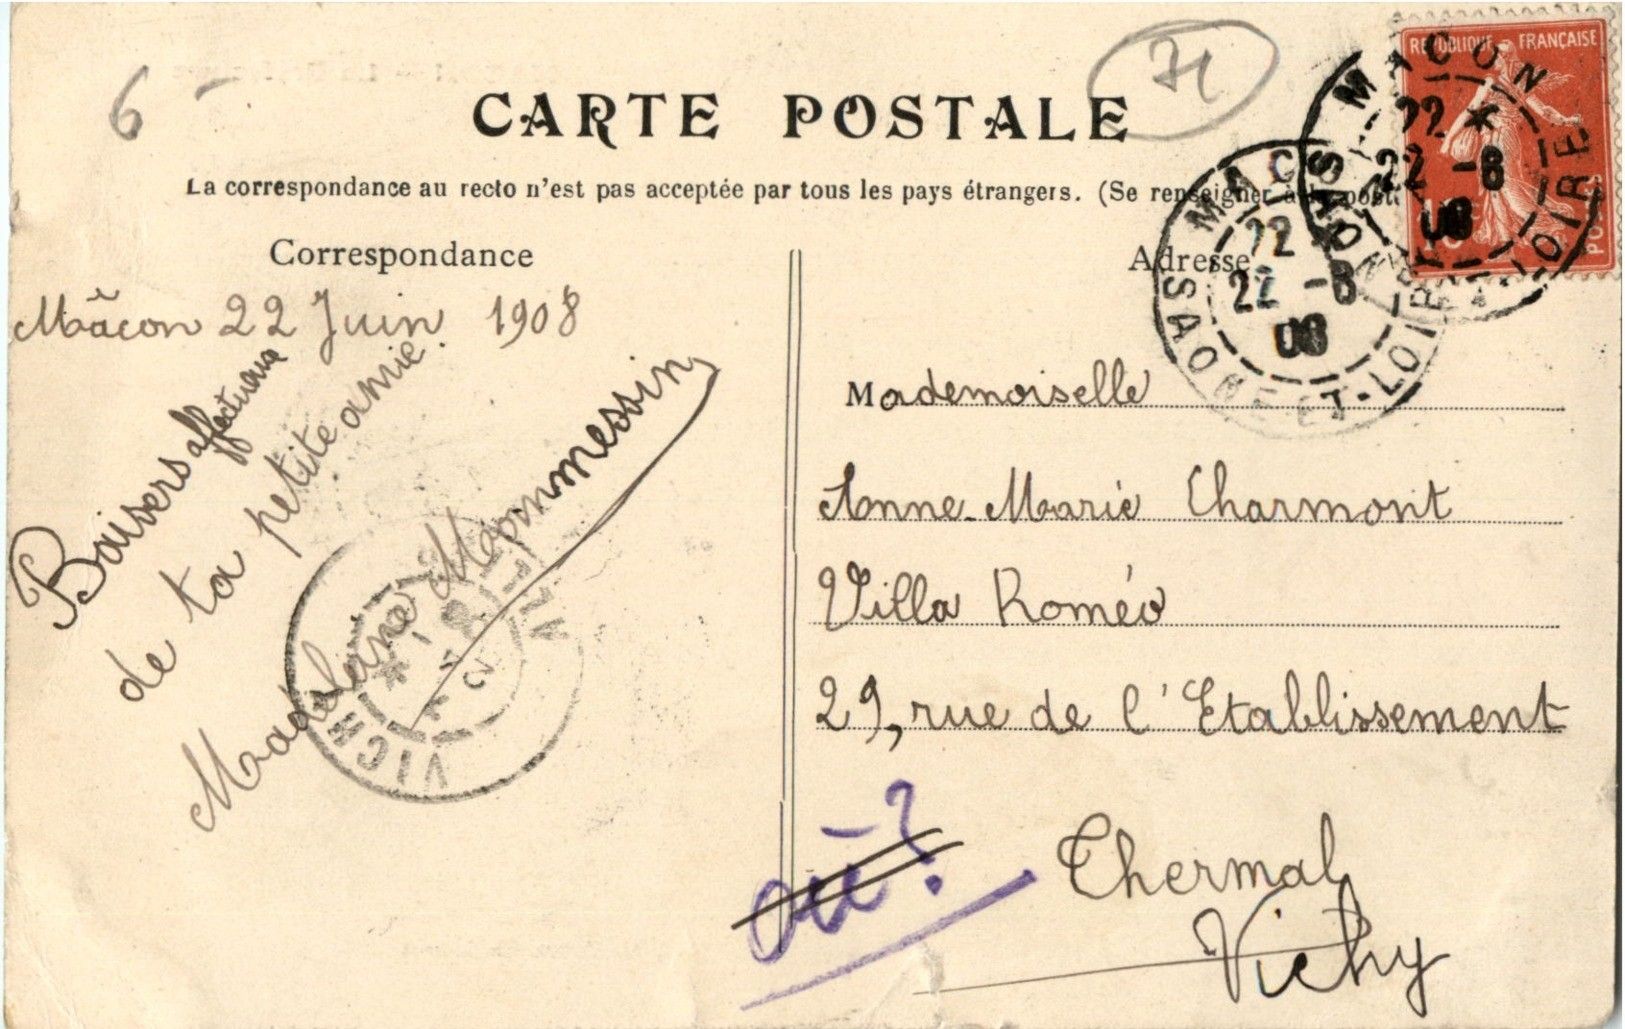 6 -
71
CARTE POSTALE
La correspondance au recto n'est pas acceptée par tous les pays étrangers. (Se renseigner à la poste
RÉPUBLIQUE FRANÇAISE
POSTES
MACON
22
22 -6
08
SAONE-ET-LOIRE
MACON
22
22 -6
08
SAONE-ET-LOIRE
Correspondance
Mâcon 22 Juin 1908
Baisers affectueux
de ta petite amie
Madelaine Mommessin
VICHY
ALLIER
Adresse
Mademoiselle
Anne-Marie Charmont
Villa Roméo
29, rue de l'Etablissement
Thermal
Vichy
où?